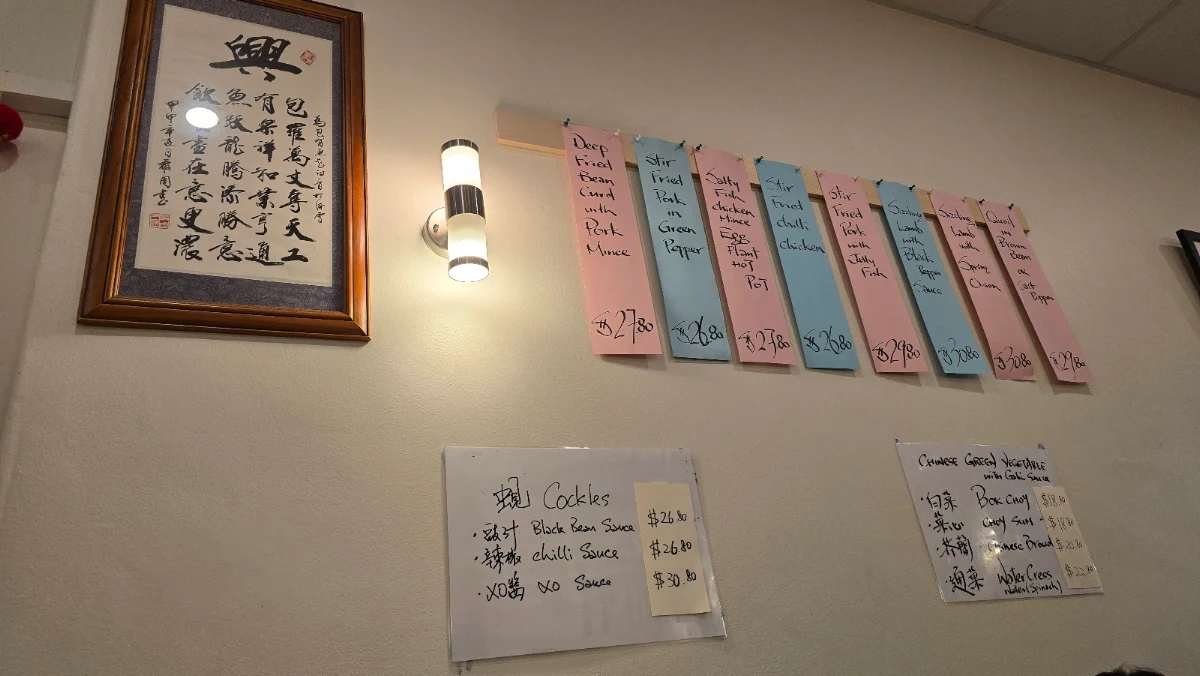 興
包羅萬丈奪天工
有榮祥和業亨通
魚躍龍騰添勝意
飲 壺在意更濃
Deep
Fried
Bean
Curd
with
Pork
Mince
$27.80
Stir
Fried
Pork
in
Green
Pepper
$26.80
Salty
Fish
chicken
Mince
Egg
Plant
HOT
POT
$27.80
Stir
Fried
chilli
chicken
$26.80
Stir
Fried
Pork
with
Jelly
Fish
$29.80
Sizzling
Lamb
with
Black
Pepper
Sauce
$30.80
Sizzling
Lamb
with
Spring
Onion
$30.80
Quail
in
Brown
Bean
or
Salt
Pepper
$29.80
蜆 Cockles
· 豉汁 Black Bean Sauce $26.80
· 辣椒 chilli Sauce $26.80
· XO醬 XO Sauce $30.80
CHINESE GREEN VEGETABLE
with Galic Sauce
· 白菜 BOK CHOY $18.80
· 菜心 CHOY SUM $18.80
· 芥蘭 Chinese Broud $20.80
· 通菜 Water Cress $22.80
Water (Spinach)